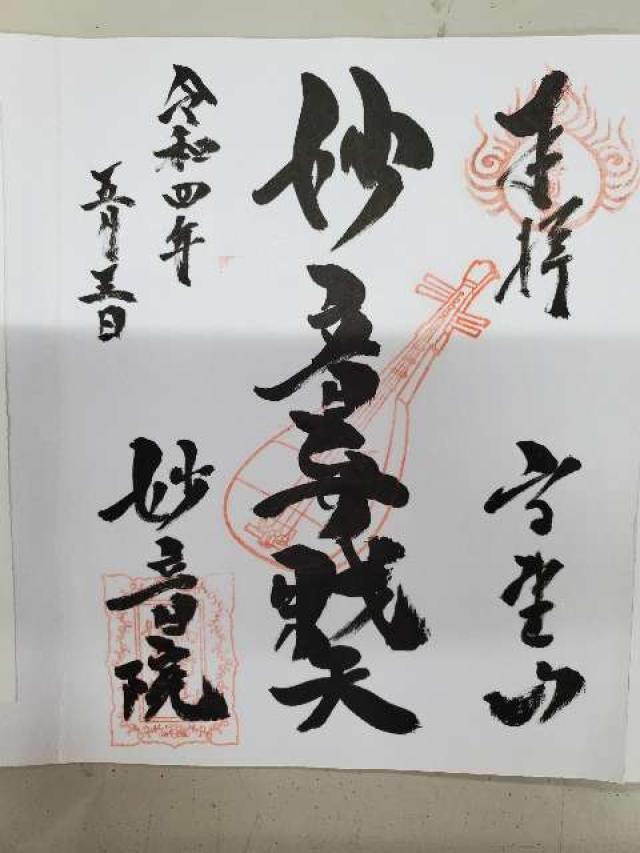 奉拝
高野山
妙音弁戝天
令和四年
五月五日
妙音院